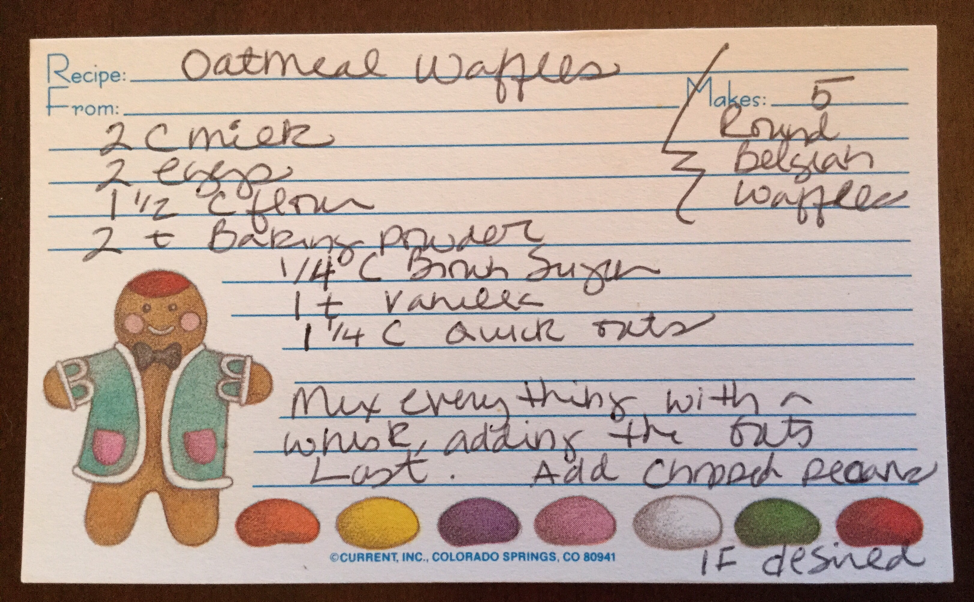 Recipe: Oatmeal Waffles
From:
Makes: 5
Round
Belgian
Waffles
2 C milk
2 eggs
1 1/2 C flour
2 t Baking powder
1/4 C Brown Sugar
1 t vanilla
1 1/4 C Quick oats
Mix everything with a
whisk, adding the oats
Last. Add Chopped pecans
IF desired
©CURRENT, INC., COLORADO SPRINGS, CO 80941